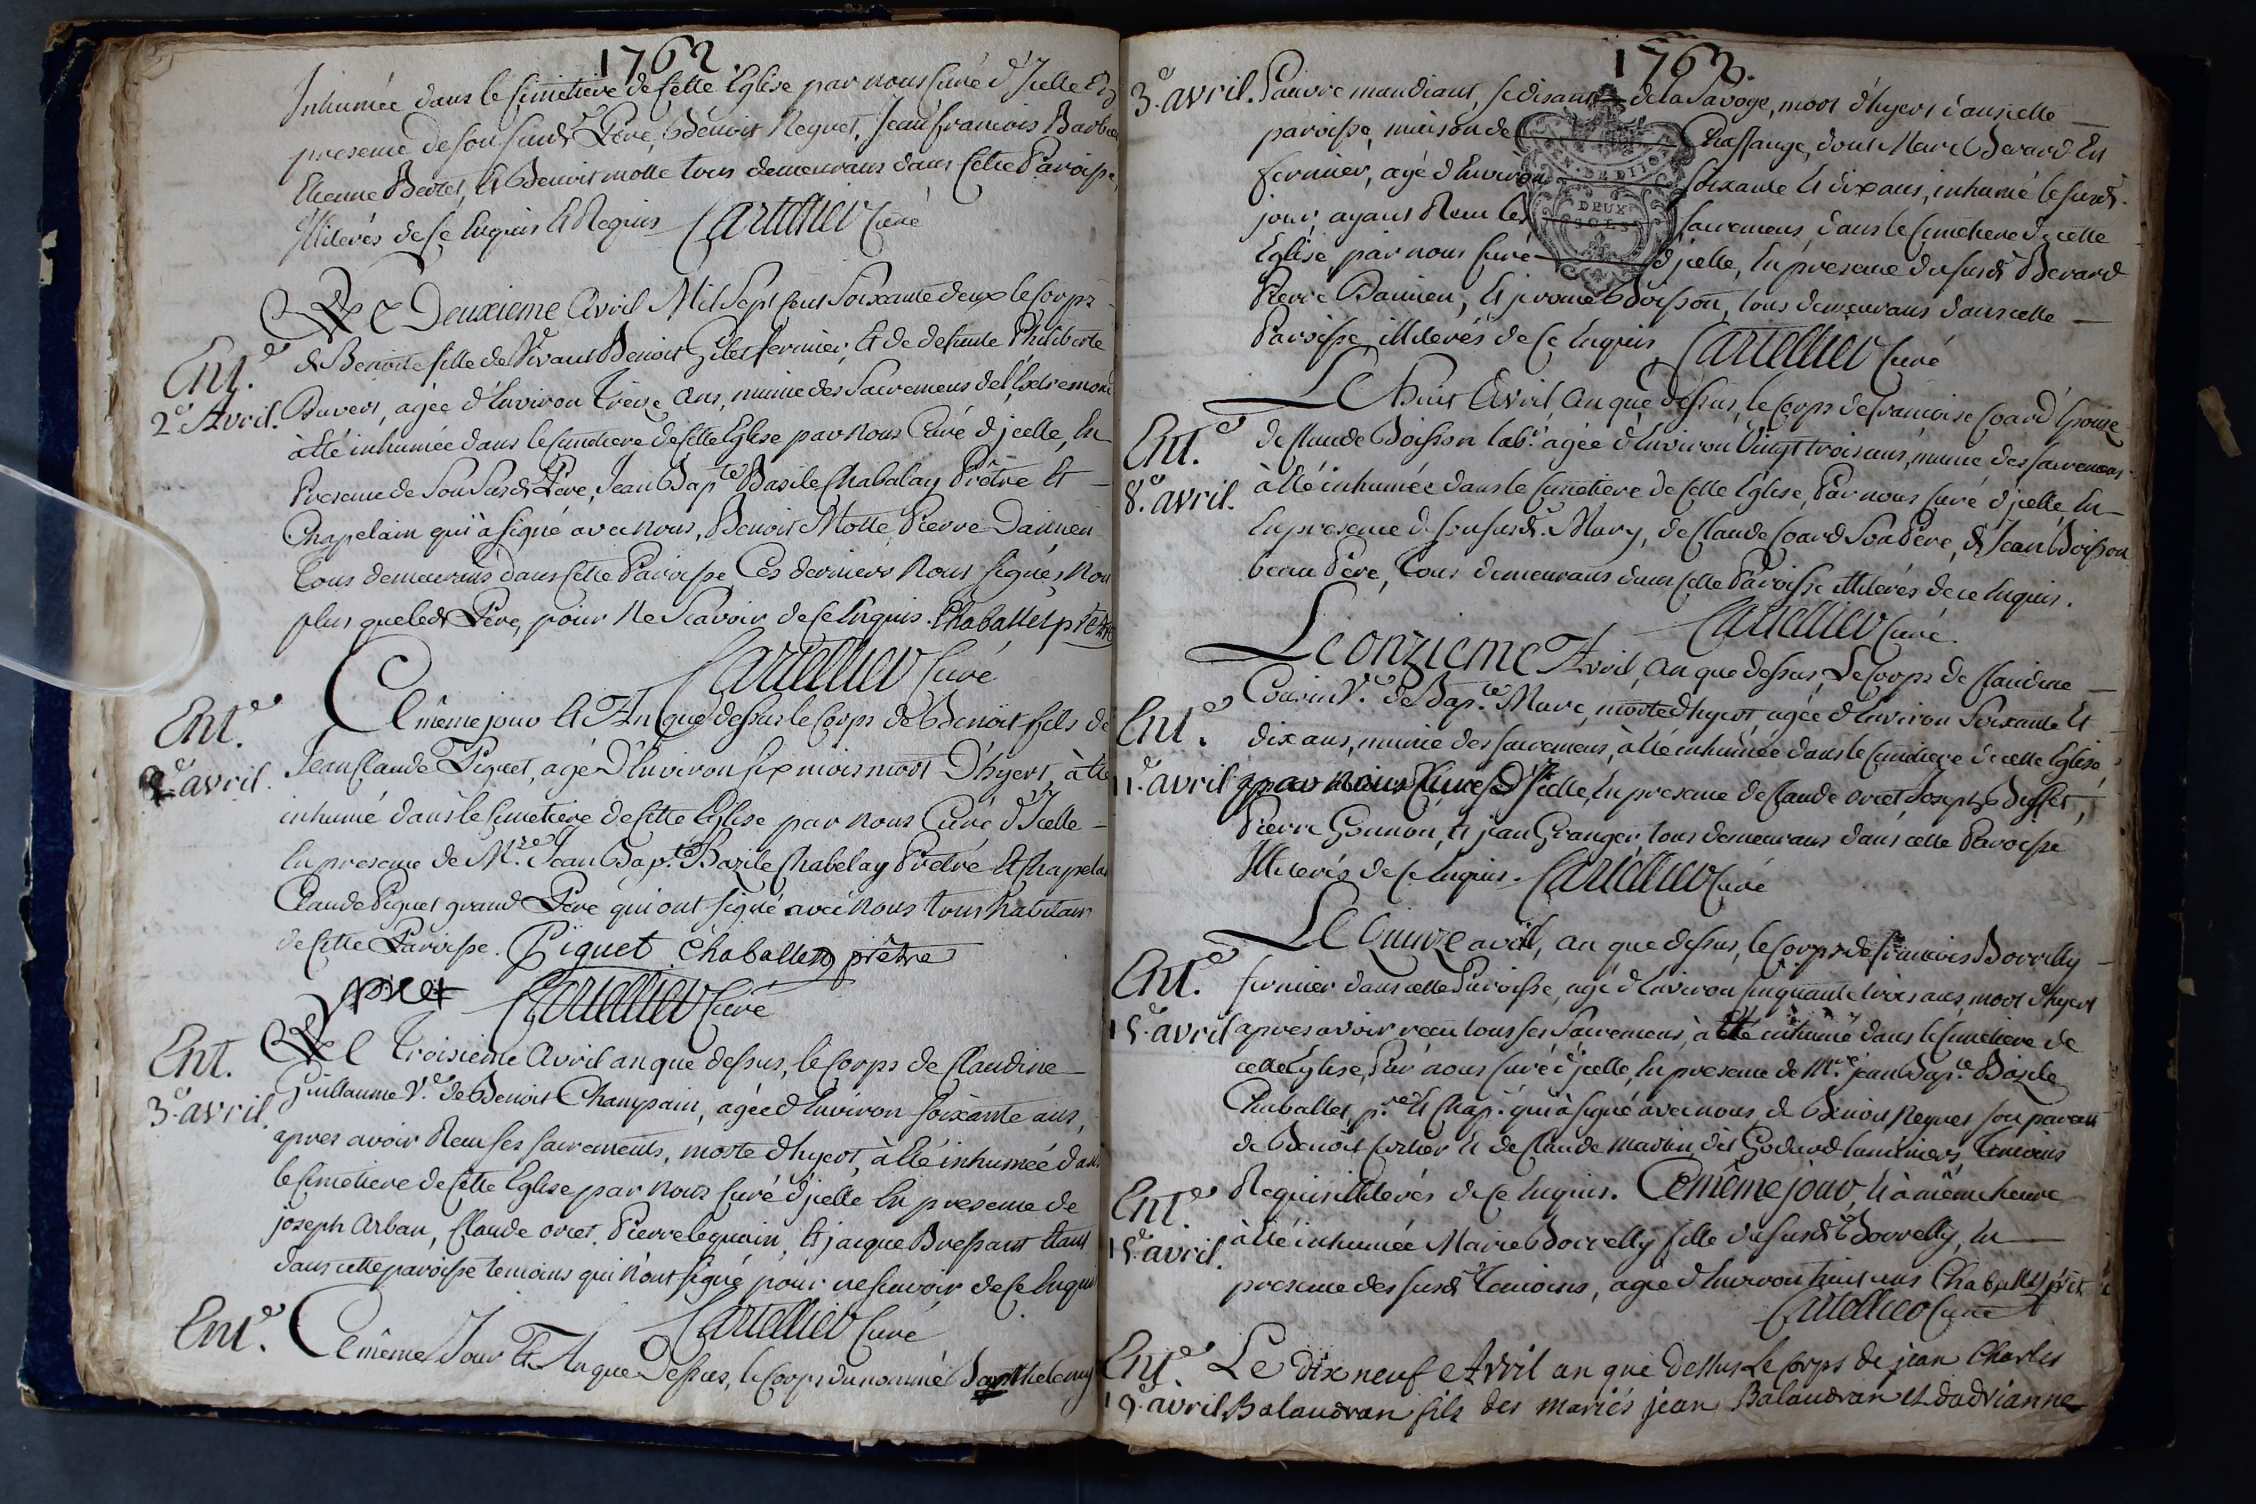 1762.
Inhumée dans le Cimetiere de Cette Eglise par nous Curé d'Icelle En
presence de son susd.t Pere, Benoit Neguet, Jean francois Barbe
Etienne Bertet, Et Benoit molle tous demeurans dans Cette Paroisse,
Illiterés de ce Enquis Et Requis Cartellier Curé
Ent.e
2.e Avril.
Le Deuxieme Avril Mil Sept Cent Soixante deux le Corps
de Benoite fille de Vivant Benoit Gilet fermier, Et de defunte Philiberte
Buvert, agée d'Environ Treize ans, munie des Sacremens de l'Extremonc
à Eté inhumée dans le Cimetiere de Cette Eglise par Nous Curé d'jcelle, En
Presence de Son Susd.t Pere, Jean Bap.te Basile Chabalay Prêtre Et
Chapelain qui à signé avec nous, Benoit Molle, Pierre Dannien
tous demeurans dans Cette Paroisse, Ces derniers Nont signés Non
plus que led.t Pere, pour Ne Scavoir de Ce Enquis. Chaballet prêtre
Cartellier Curé
Ent.e
2.e avril.
Ce même jour Et An que dessus le Corps de Benoit fils de
Jean Claude Piquet, agé D'Environ six mois mort D'hyert, à Eté
inhumé dans le Cimetiere de Cette Eglise par Nous Curé d'Icelle
En presence de M.re Jean Bap.te Bazile Chabelay Prêtre Et Chapelai
Claude Piquet grand Pere qui ont signé avec nous tous habitans
de Cette Paroisse. Piquet Chaballet prêtre
Cartellier Curé
Ent.
3.e avril.
Le Troisieme Avril an que dessus, le Corps de Claudine
Guillaume V.e de Benoit Champain, agée d'Environ soixante ans,
apres avoir Reçu ses sacrements, morte d'hyert, à Eté inhumée dans
le Cimetiere de Cette Eglise par Nous Curé d'jcelle En presence de
joseph Arban, Claude orcet, Pierre lequain, Et jacque Bressant Etant
dans cette paroisse temoins qui n'ont signé pour ne scavoir de Ce Enquis
Cartellier Curé
Ent.e
Ce même Jour Et An que Dessus, le Corps du nommé Barthelemy
1762.
3.e avril.
Pauvre mandiant, se disant de la Savoye, mort d'hyert dans cette
paroisse, maison de Chassange, dont Marc Berard En
fermier, agé d'Environ soixante Et dix ans, inhumé le susd.
jour ayant Recu les sacremens, dans le Cimetiere de cette
Eglise, par nous Curé d'jcelle, En presence du susd.t Berard
Pierre Dannien, Et jerome Boisson, tous demeurans dans cette
Paroisse illiterés de Ce Enquis Cartellier Curé
EN. DE DIJON
DEUX
SOLS
Ent.e
8.e avril.
Le Huit Avril, An que dessus, le Corps de francoise Coard Epouse
de Claude Boisson lab.r agée d'Environ Vingt trois ans, munie des sacremens
à Eté inhumée dans le Cimetiere de Cette Eglise, Par nous Curé d'jcelle, En
En presence de son susd.t Mary, de Claude Coard Son Pere, & Jean Boisson
beau Pere, Tous demeurans dans Cette Paroisse illiterés de ce Enquis.
Cartellier Curé.
Ent.e
11.e avril
Le onzieme Avril, an que dessus, Le Corps de Claudine
Cousin V.e de Bap.te Marc, morte d'hyert, agée d'Environ Soixante Et
dix ans, munie des sacremens, à Eté inhumée dans le Cimetiere de cette Eglise,
par nous Curé d'jcelle, En presence de Claude orcet, Joseph Buffet,
Pierre Gonnon, Et jean Granger, tous demeurans dans cette Paroisse
Illiterés de Ce Enquis. Cartellier Curé
Ent.e
15.e avril
Le Quinze avril, an que dessus, le Corps de francois Borrelly
fermier dans cette Paroisse, agé d'Environ Cinquante trois ans, mort d'hyert
apres avoir recu tous ses Sacremens, à Eté inhumé dans le Cimetiere de
cette Eglise, Par nous Curé d'jcelle, En presence de M.re jean Bap.te Bazile
Chaballet p.re Et Chap.n qui à signé avec nous, de Benoit Neguet son parent
de Benoit Cartier Et de Claude Martin dit Godard Luminiers, Temoins
Requis illiterés de Ce Enquis. Ce même jour, Et à même heure
Ent.e
15.e avril.
à Eté inhumée Marie Borrelly fille du susd.t Borrelly, En
presence des susd.ts Temoins, agée d'Environ huit ans Chaballet prêt
Cartellier Curé
Ent.e
19.e avril
Le dix neuf Avril an que Dessus Le Corps de jean Charles
Balandran fils des mariés jean Balandran et dadrianne